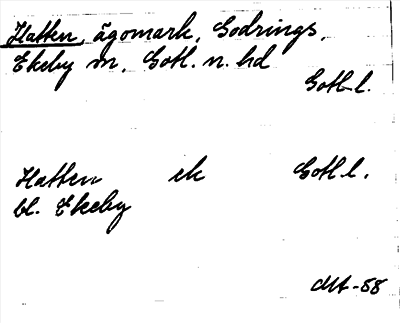 Hatten, ägomark, Godrings,
Ekeby sn, Gotl. n. hd
Gotl l.
Hatten ek Gotl l.
bl. Ekeby
-58